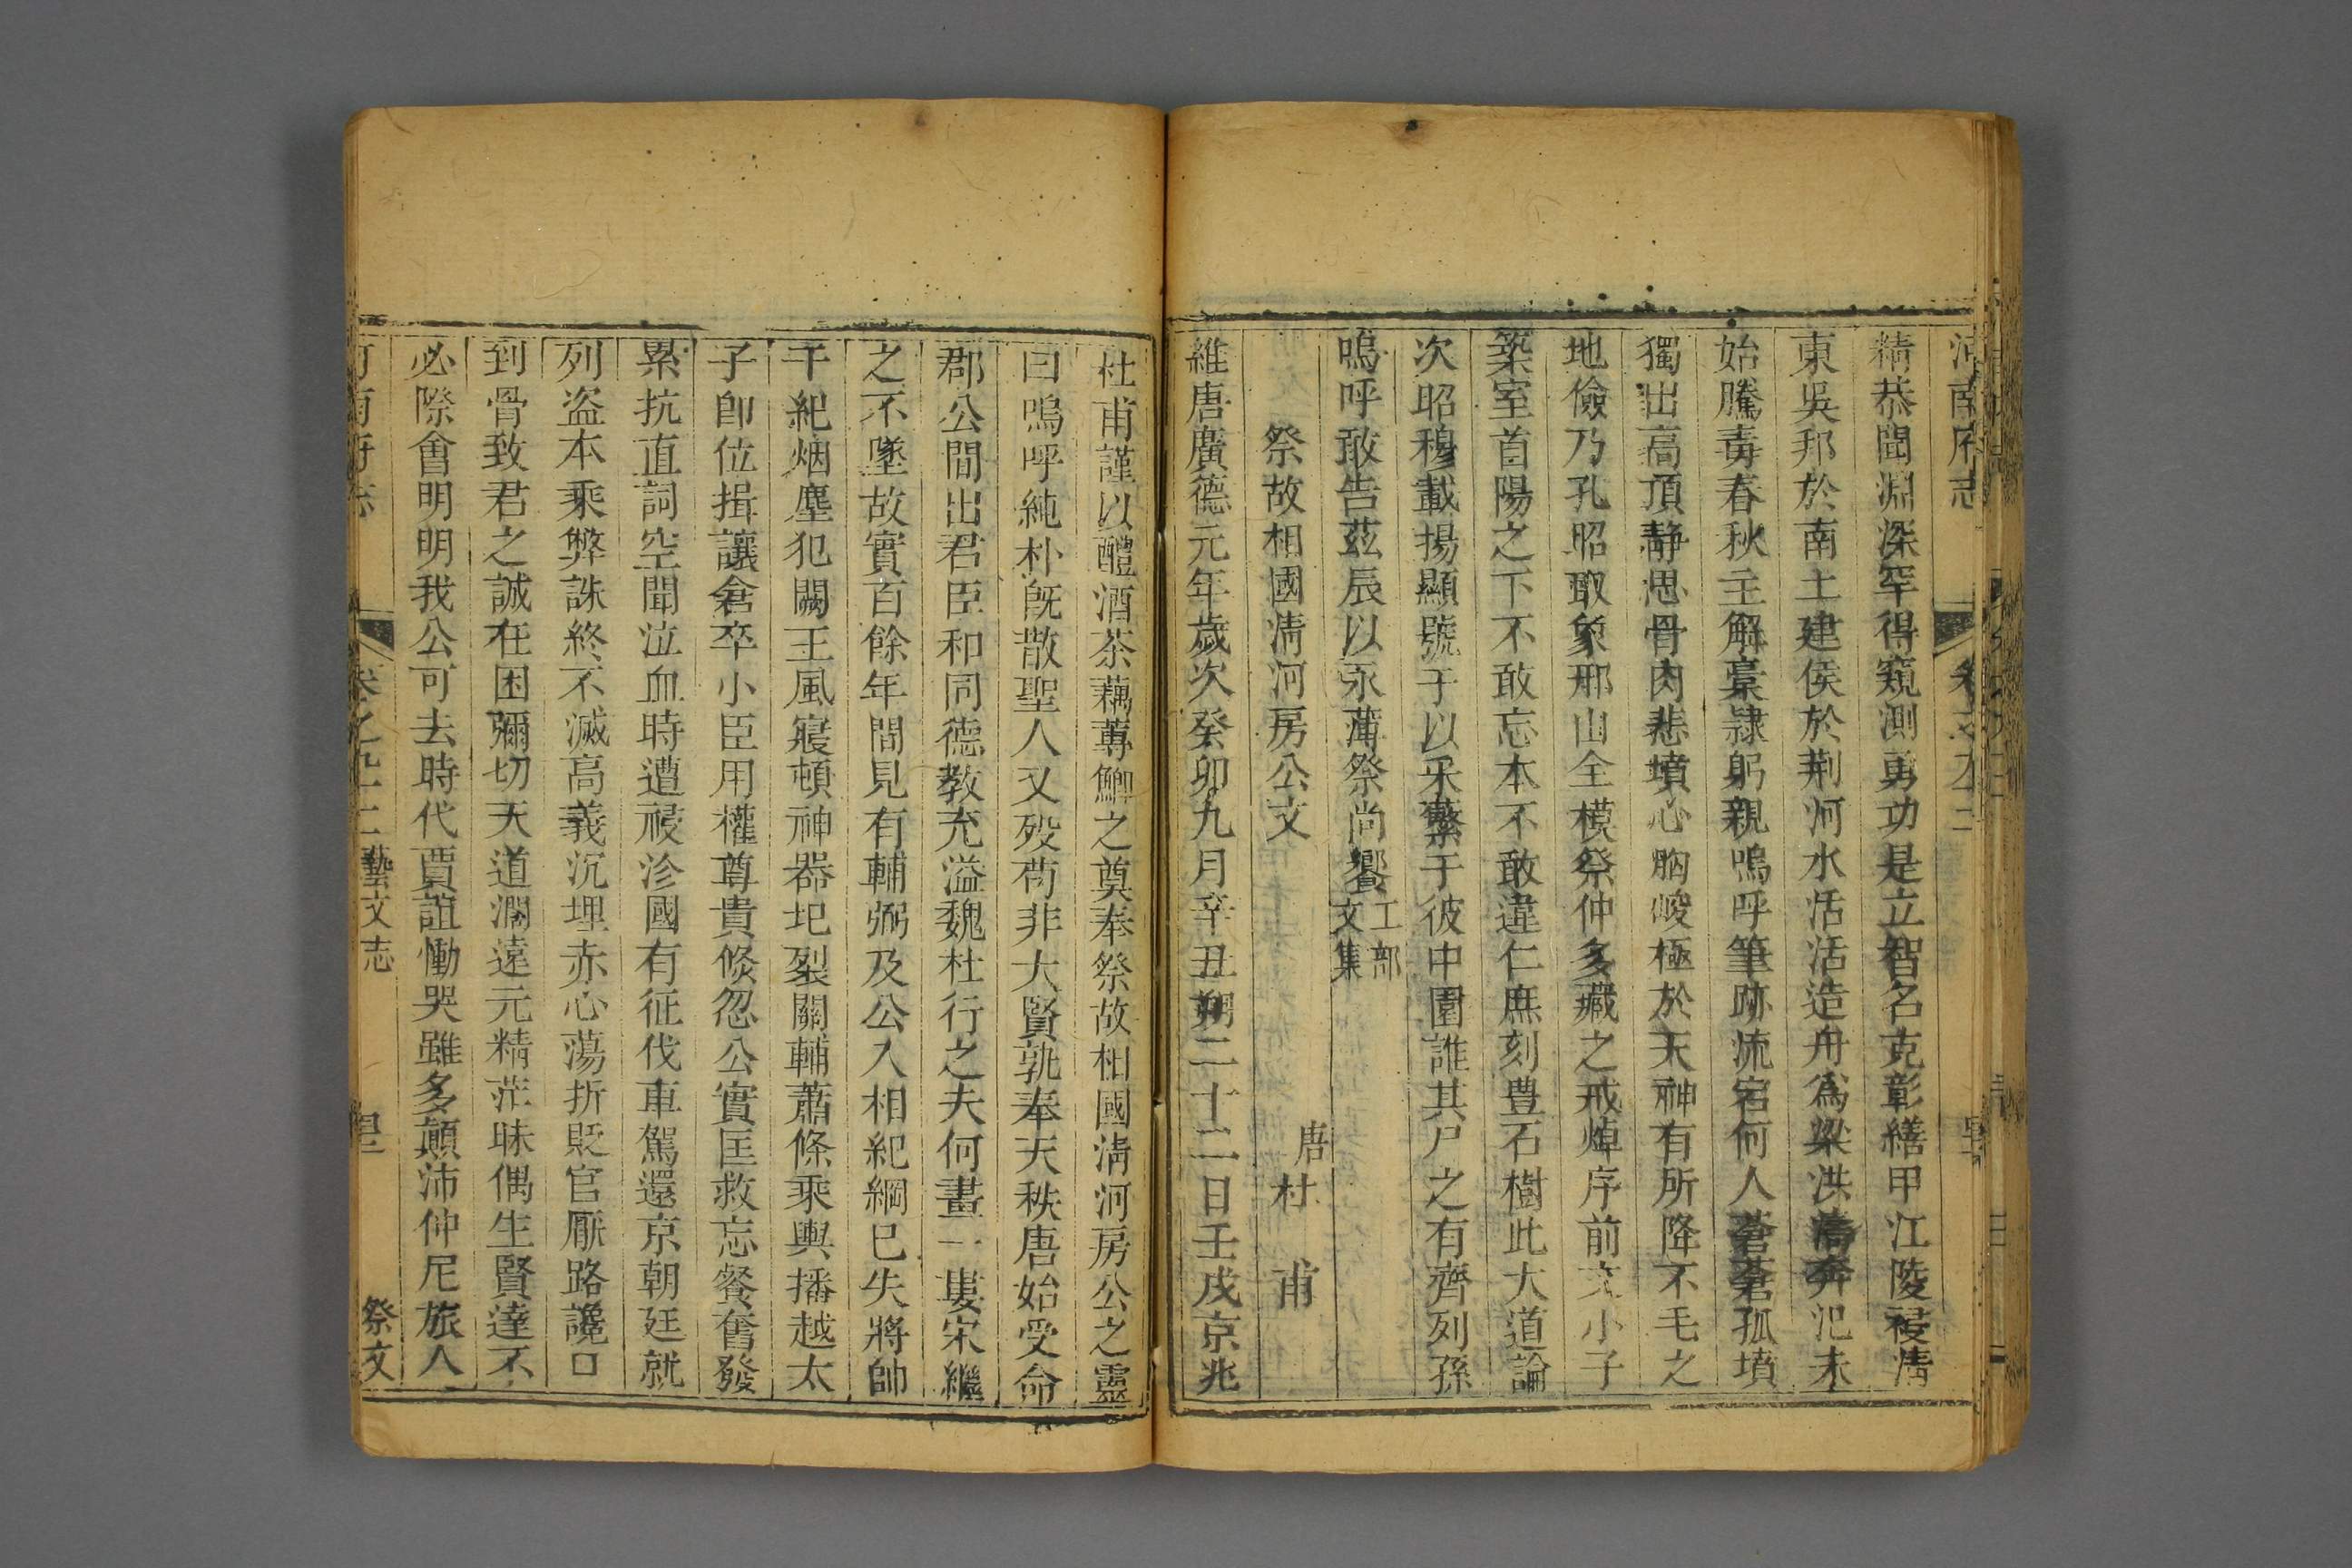 河南府志
精恭聞淵深罕得窺測勇功是立智名克彰繕甲江陵祲清
東吳邦於南土建侯於荆河水活活造舟爲梁洪濤奔汜未
始騰毒春秋主解稾隸躬親嗚呼筆跡流宕何人蒼蒼孤墳
獨出高頂靜思骨肉悲墳心胸峻極於天神有所降不毛之
地儉乃孔昭取象邢山全模祭仲多藏之戒焯序前文小子
築室首陽之下不敢忘本不敢違仁庶刻豊石樹此大道論
次昭穆載揚顯號于以采蘩于彼中園誰其尸之有齊列孫
嗚呼敢告茲辰以永薄祭尚饗工部文集
祭故相國淸河房公文
唐杜甫
維唐廣德元年歲次癸卯九月辛丑朔二十二日壬戌京兆
杜甫謹以醴酒茶藕蓴鯽之奠奉祭故相國淸河房公之靈
曰嗚呼純朴旣散聖人又歿苟非大賢孰奉天秩唐始受命
郡公間出君臣和同德教充溢魏杜行之夫何畫一婁宋繼
之不墜故實百餘年間見有輔弼及公入相紀綱巳失將帥
干紀烟塵犯闕王風寢頓神器圮裂關輔蕭條乘輿播越太
子卽位揖讓倉卒小臣用權尊貴倐忽公實匡救忘餐奮發
累抗直詞空聞泣血時遭祲沴國有征伐車駕還京朝廷就
列盜本乘弊誅終不滅高義沉埋赤心蕩折貶官厭路讒口
到骨致君之誠在困彌切天道濶遠元精茫昧偶生賢達不
必際會明明我公可去時代賈誼慟哭雖多顛沛仲尼旅人
河南府志
卷之九十二藝文志
祭文